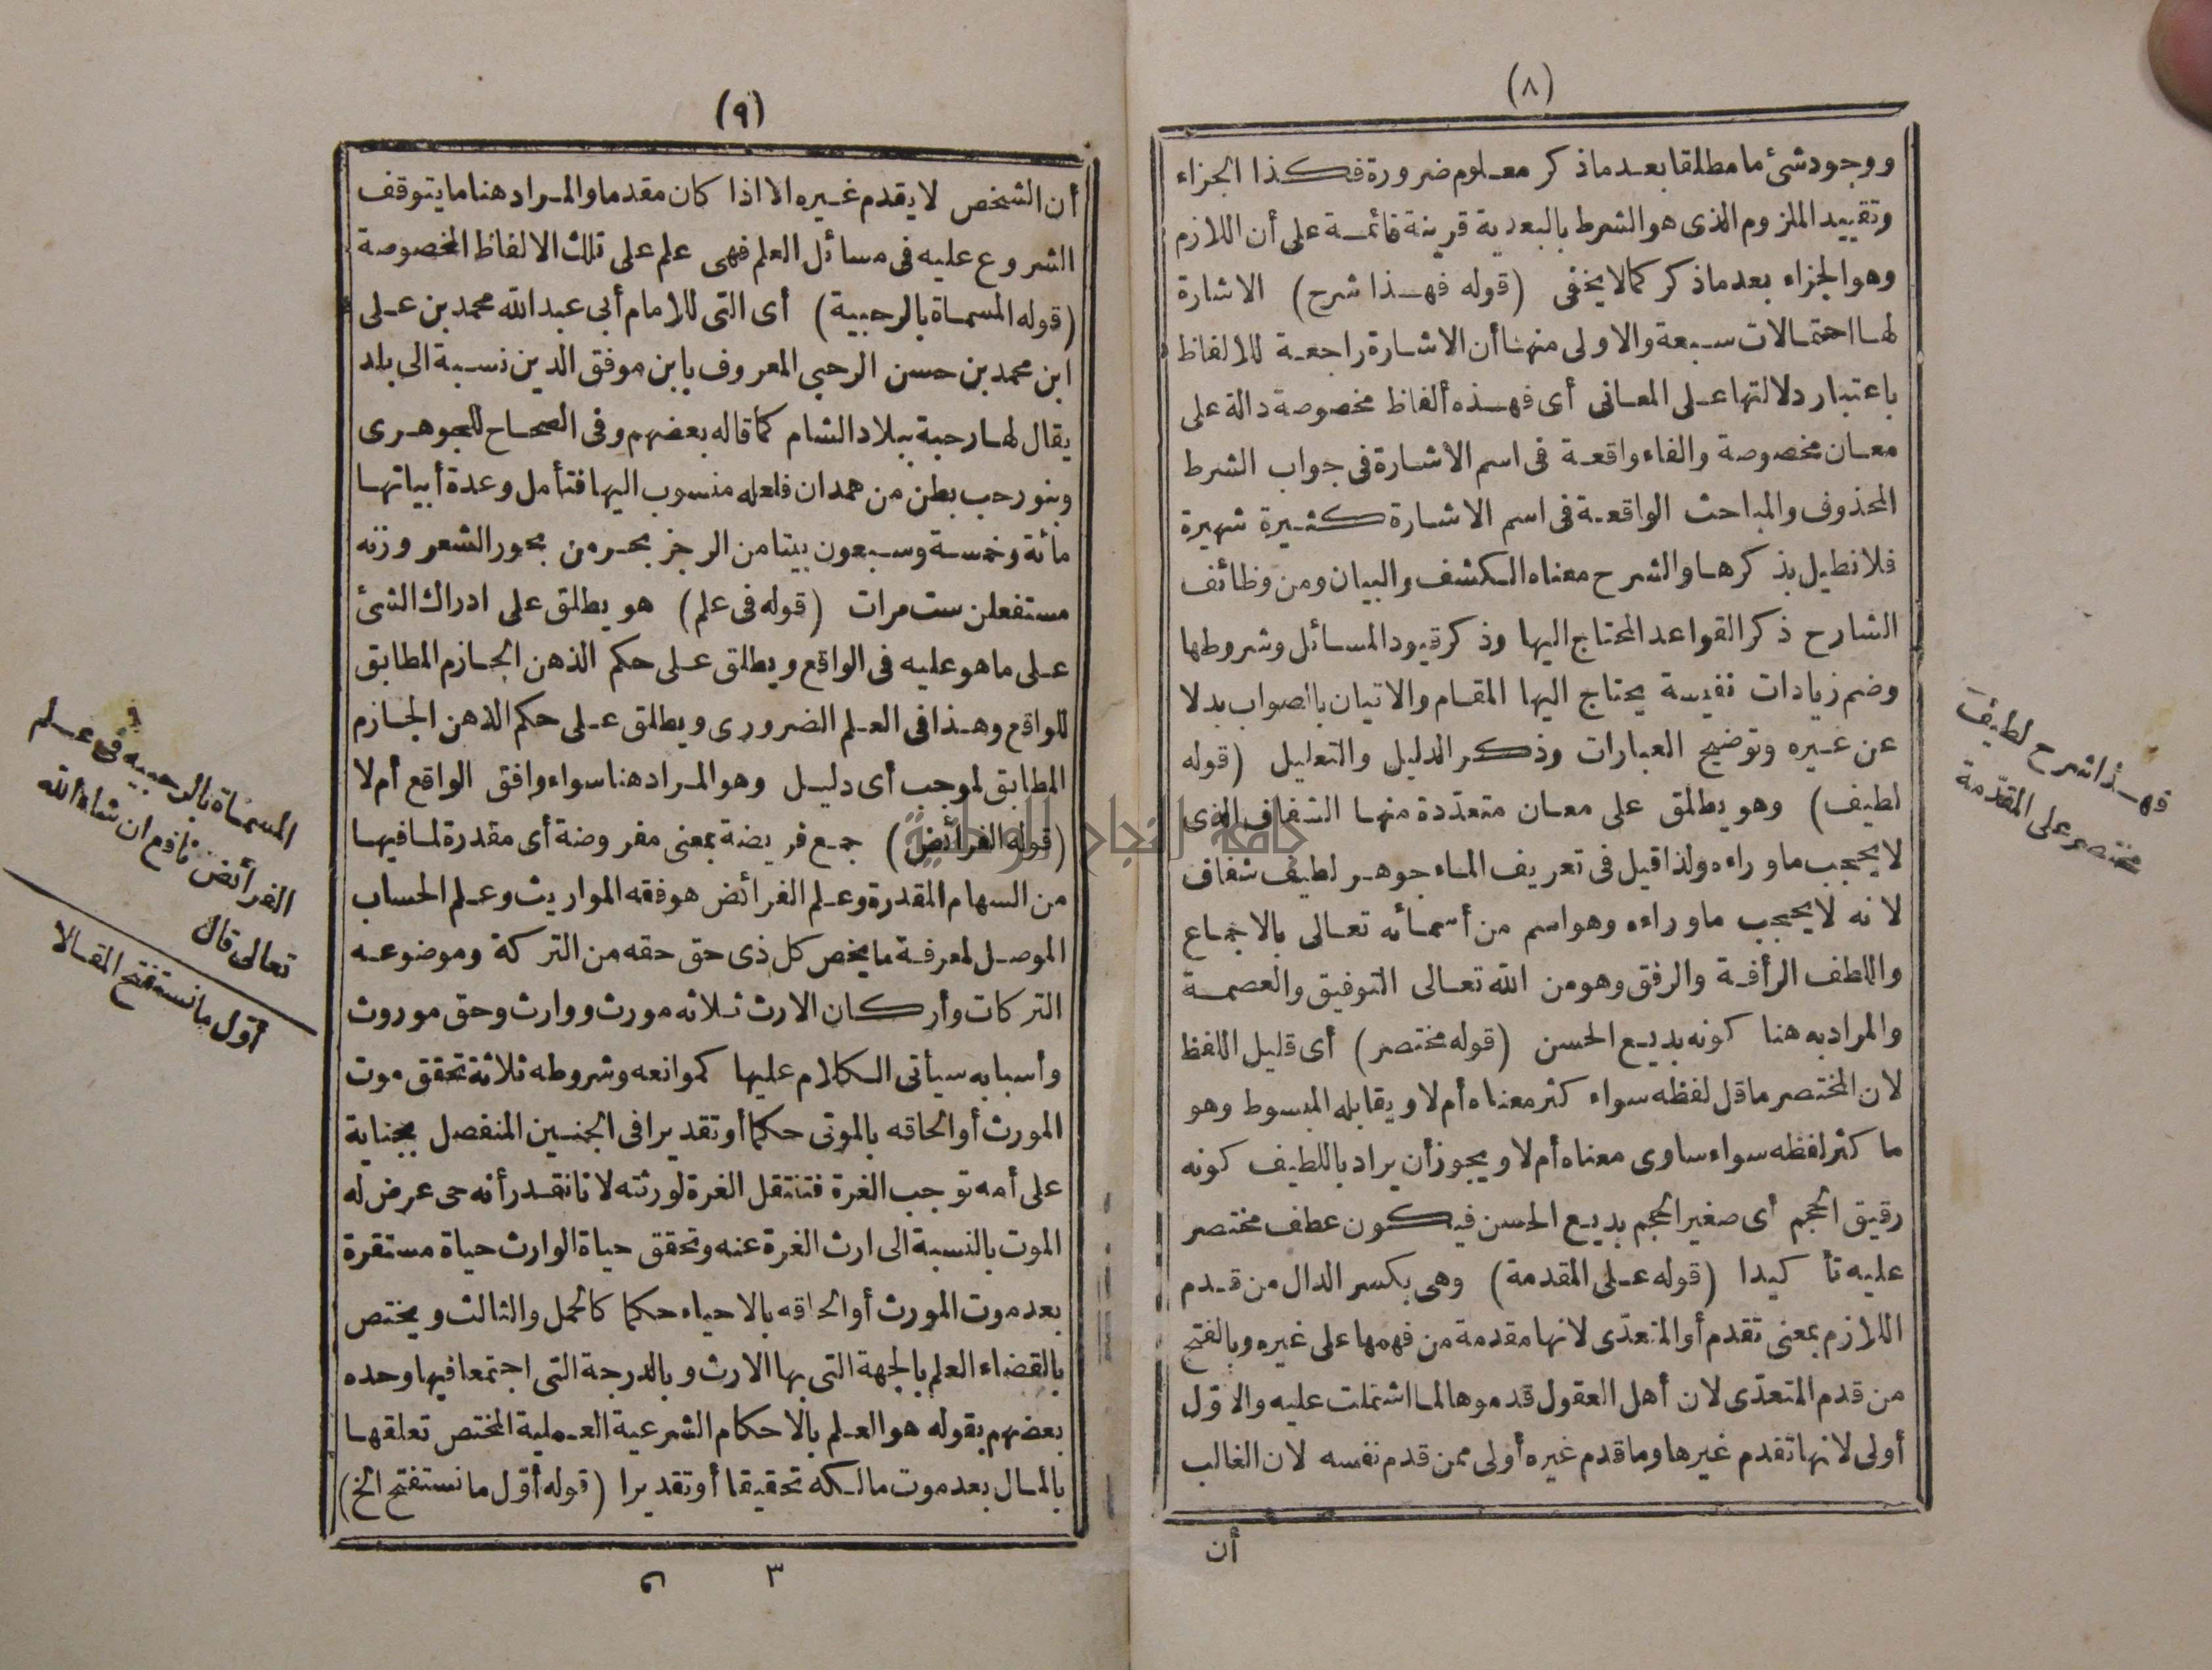 (٨)
ووجود شئ ما مطلقا بعد ما ذكر معلوم ضرورة فكذا الجزاء
وتقييد الملزوم الذى هو الشرط بالبعدية قرينة قائمة على أن اللازم
وهو الجزاء بعد ما ذكر كما لا يخفى (قوله فهذا شرح) الاشارة
لها احتمالات سبعة والاولى منها أن الاشارة راجعة للالفاظ
باعتبار دلالتها على المعانى أى فهذه ألفاظ مخصوصة دالة على
معان مخصوصة والفاء واقعة فى اسم الاشارة فى جواب الشرط
المحذوف والمباحث الواقعة فى اسم الاشارة كثيرة شهيرة
فلا نطيل بذكرها والشرح معناه الكشف والبيان ومن وظائف
الشارح ذكر القواعد المحتاج اليها وذكر قيود المسائل وشروطها
وضم زيادات نفيسة يحتاج اليها المقام والاتيان بالصواب بدلا
عن غيره وتوضيح العبارات وذكر الدليل والتعليل (قوله
لطيف) وهو يطلق على معان متعددة منها الشفاف الذى
لا يحجب ما وراءه ولذا قيل فى تعريف الماء جوهر لطيف شفاف
لانه لا يحجب ما وراءه وهو اسم من أسمائه تعالى بالاجماع
واللطف الرأفة والرفق وهو من الله تعالى التوفيق والعصمة
والمراد به هنا كونه بديع الحسن (قوله مختصر) أى قليل اللفظ
لان المختصر ما قل لفظه سواء كثر معناه أم لا ويقابله المبسوط وهو
ما كثر لفظه سواء ساوى معناه أم لا ويجوز أن يراد باللطيف كونه
رقيق الحجم أى صغير الحجم بديع الحسن فيكون عطف مختصر
عليه تأكيدا (قوله على المقدمة) وهى بكسر الدال من قدم
اللازم بمعنى تقدم أو المتعدّى لانها مقدمة من فهمها على غيره وبالفتح
من قدم المتعدّى لان أهل العقول قدموها لما اشتملت عليه والاوّل
أولى لانها تقدم غيرها وما قدم غيره أولى ممن قدم نفسه لان الغالب
أن
فهذا شرح لطيف
مختصر على المقدّمة
(٩)
أن الشخص لا يقدم غيره الا اذا كان مقدما والمراد هنا ما يتوقف
الشروع عليه فى مسائل العلم فهى علم على تلك الالفاظ المخصوصة
(قوله المسماة بالرحبية) أى التى للامام أبى عبد الله محمد بن على
ابن محمد بن حسن الرحبى المعروف بابن موفق الدين نسبة الى بلد
يقال لها رحبة ببلاد الشام كما قاله بعضهم وفى الصحاح للجوهرى
وبنو رحب بطن من همدان فلعله منسوب اليها فتأمل وعدة أبياتها
مائة وخمسة وسبعون بيتا من الرجز بحر من بحور الشعر وزنه
مستفعلن ست مرات (قوله فى علم) هو يطلق على ادراك الشئ
على ما هو عليه فى الواقع ويطلق على حكم الذهن الجازم المطابق
للواقع وهذا فى العلم الضرورى ويطلق على حكم الذهن الجازم
المطابق لموجب أى دليل وهو المراد هنا سواء وافق الواقع أم لا
(قوله الفرائض) جمع فريضة بمعنى مفروضة أى مقدرة لما فيها
من السهام المقدرة وعلم الفرائض هو فقه المواريث وعلم الحساب
الموصل لمعرفة ما يخص كل ذى حق حقه من التركة وموضوعه
التركات وأركان الارث ثلاثه مورث ووارث وحق موروث
وأسبابه سيأتى الكلام عليها كموانعه وشروطه ثلاثة تحقق موت
المورث أو الحاقه بالموتى حكما أو تقديرا فى الجنين المنفصل بجناية
على أمه توجب الغرة فتنتقل الغرة لورثته لانا نقدر أنه حى عرض له
الموت بالنسبة الى ارث الغرة عنه وتحقق حياة الوارث حياة مستقرة
بعد موت المورث أو الحاقه بالاحياء حكما كالحمل والثالث ويختص
بالقضاء العلم بالجهة التى بها الارث وبالدرجة التى اجتمعا فيها وحده
بعضهم بقوله هو العلم بالاحكام الشرعية العملية المختص تعلقها
بالمال بعد موت مالكه تحقيقا أو تقديرا (قوله أوّل ما نستفتح الخ)
٣
المسماة بالرحبيه فى علم
الفرائض نافع ان شاء الله
تعالى قال
أوّل ما نستفتح المقالا
جامعة النجاح الوطنية